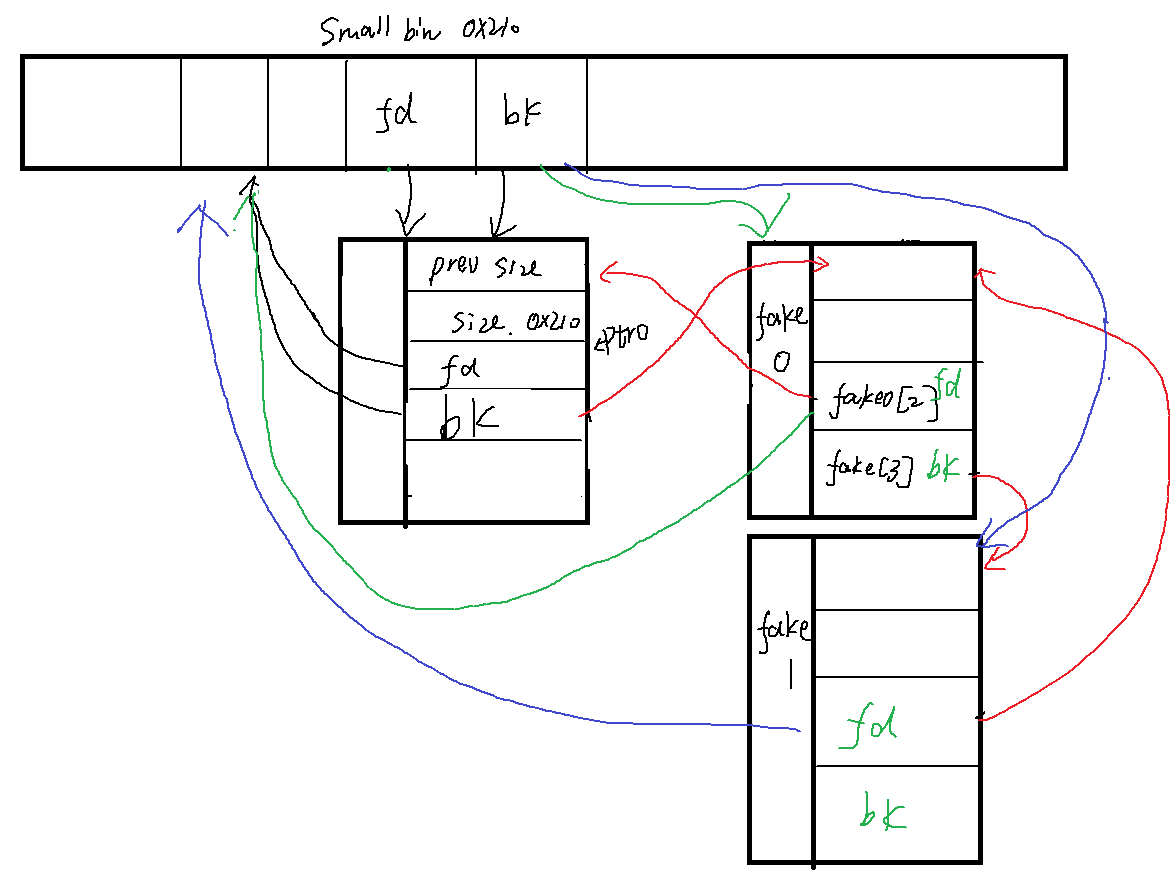 Small bin 0x210
fd
bk
prev size
size. 0x210
ptr0
fd
bk
fake
0
fake0[2] fd
fake[3] bk
fake
1
fd
bk